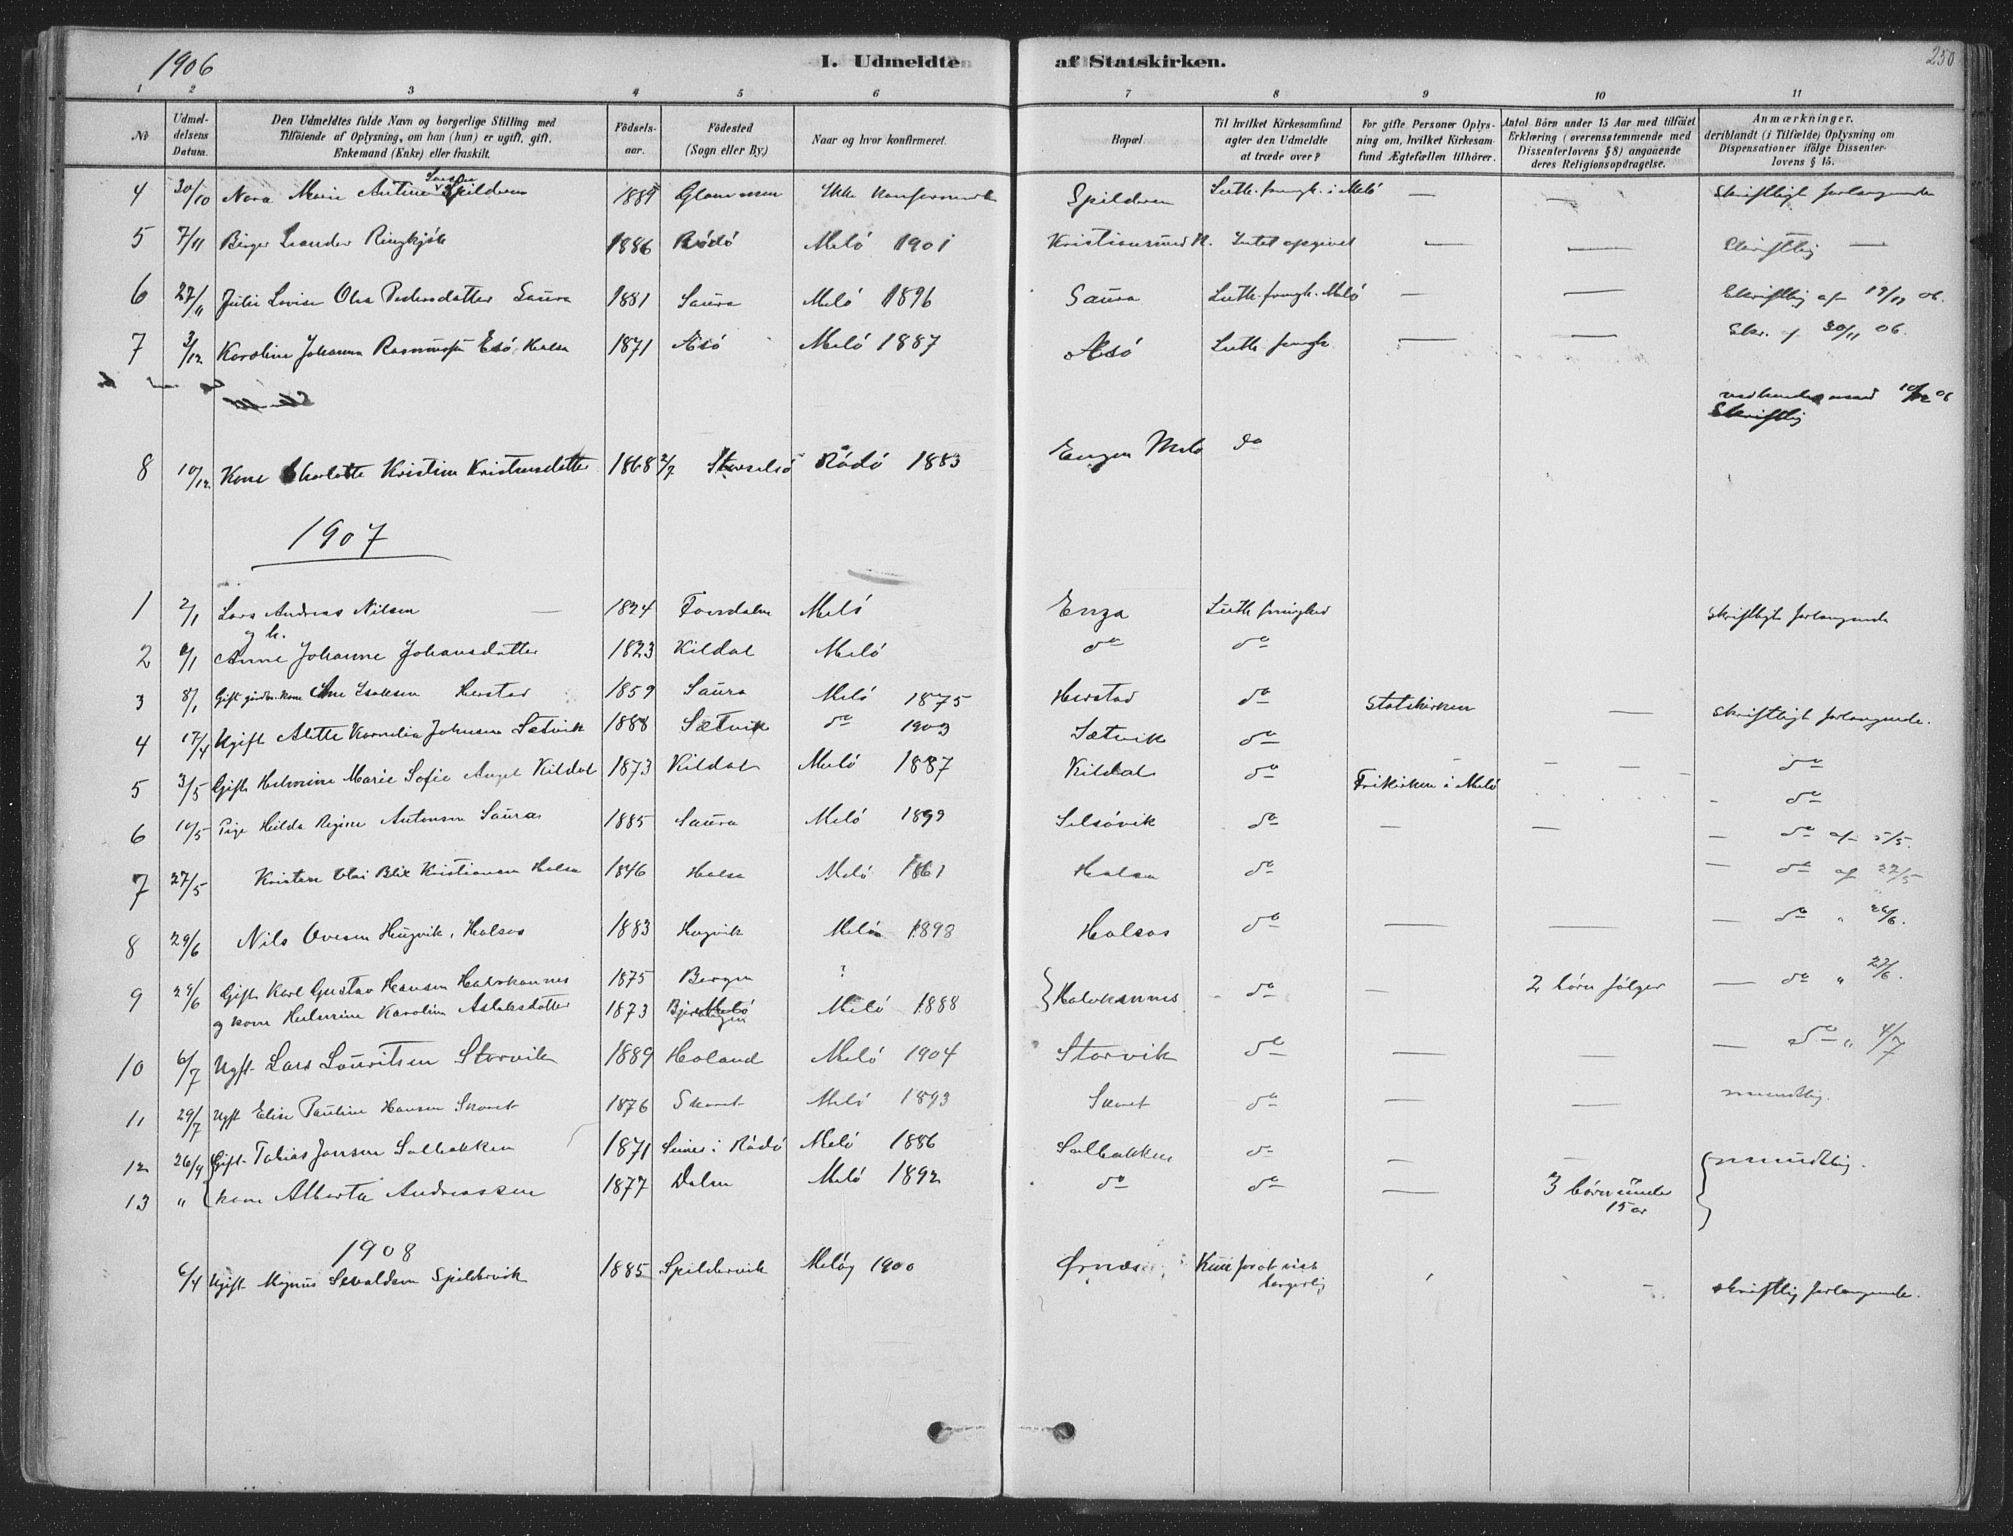 1906
I. Udmeldte af Statskirken.
250
1 2 3 4 5 6 7 8 9 10 11
No
Udmeldelsens Datum.
Den Udmeldtes fulde Navn og borgerlige Stilling med Tilföiende af Oplysning, om han (hun) er ugift, gift, Enkemand (Enke) eller fraskilt.
Födselsaar.
Födested (Sogn eller By.)
Naar og hvor konfirmeret.
Bopæl
Til hvilket Kirkesamfund agter den Udmeldte at træde over?
For gifte Personer Oplysning om, hvilket Kirkesamfund Ægtefællen tilhörer.
Antal Börn under 15 Aar med tilföiet Erklæring (overensstemmende med Dissenterlovens § 8) angaaende deres Religionsopdragelse.
Anmærkninger, deriblandt (i Tilfælde) Oplysning om Dispensationer ifölge Dissenterlovens § 15.
4 30/10 Nora Marie Antine Spildren 1889 Glommen Ikke konfirmeret Spilderen Luth. frimgh. i Melö — — Skriftligt forlangende
5 7/11 Birger Leander Ringkjöb 1886 Rödö Melö 1901 Kristiansund N. Intet opgivet — — Skriftlig —
6 27/11 Julie Lovise Olea Pedersdatter Saura 1881 Saura Melö 1896 Saura Luth. frimgh. Melö — — Skriftlig af 19/11 06.
7 3/12 Karoline Johanna Rasmussen Esö Halsa 1871 Æsö Melö 1887 Æsö Luth. frimgh — — Skr. af 30/11 06.
10/12 06
Skriftlig
8 10/12 Kone Charlotte Kristine Kristensdatter 1868 2/7 Storselsö Rödö 1883 Engen Melö do
1907
1 2/1 Lars Andreas Nilsen — 1824 Fondalen Melö Enga Luth frimghed Skriftligt forlangende
og h.
2 2/1 Anne Johanne Johansdatter 1823 Kildal Melö do do
3 8/1 Gift gaardm. kone Ane Isaksen Herstad 1859 Saura Melö 1875 Herstad do Statskirken — Skriftligt forlangende.
4 17/4 Ugift Alette Kornelia Johnsen Sætvik 1888 Sætvik do 1903 Sætvik do
5 3/5 Gift Helmine Marie Sofie Angel Kildal 1873 Kildal Melö 1887 Kildal do Frikirken i Melö do
6 10/5 Pige Hilda Regine Antonsen Saura 1885 Saura Melö 1899 Selsövik do — — do af 5/5.
7 27/5 Kristen Olai Blix Kristiansen Halsa 1846 Halsa Melö 1861 Halsa do — do af 27/5
8 29/6 Nils Ovesen Hugvik, Halsos 1883 Hugvik Melö 1898 Halsos do — — — do " 26/6.
9 29/6 Gift Karl Gustav Hansen Halvkannes 1875 Bergen ? Halvkannes do — 2 börn fölger — do " 27/6.
og kone Helmine Karoline Aslaksdatter 1873 Melö 1888
10 6/7 Ugft. Lars Lauritsen Storvik 1889 Holand Melö 1904 Storvik do — — — do " 4/7
11 29/7 Ugft Elise Pauline Hansen Skavet 1876 Skavet Melö 1893 Skavet do — — mundtlig.
12 26/9 Gift Tobias Jonsen Solbakken 1871 Seines i Rödö Melö 1886 Solbakken do — — mundtlig.
13 " kone Alberta Andreassen 1877 Dalen Melö 1892 do do — 3 börn under 15 år
1908
6/4 Ugift Magnus Sevaldsen Spildervik 1885 Spildervik Melöy 1900 Ørnæs Kun forat vies borgerlig skriftlig forlangende.